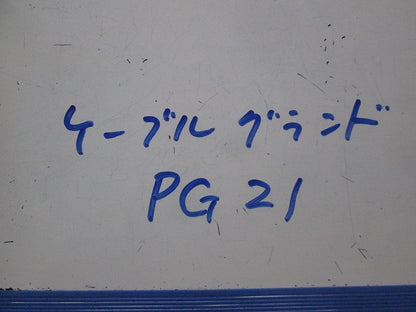 ケーブルグランド
PG 21